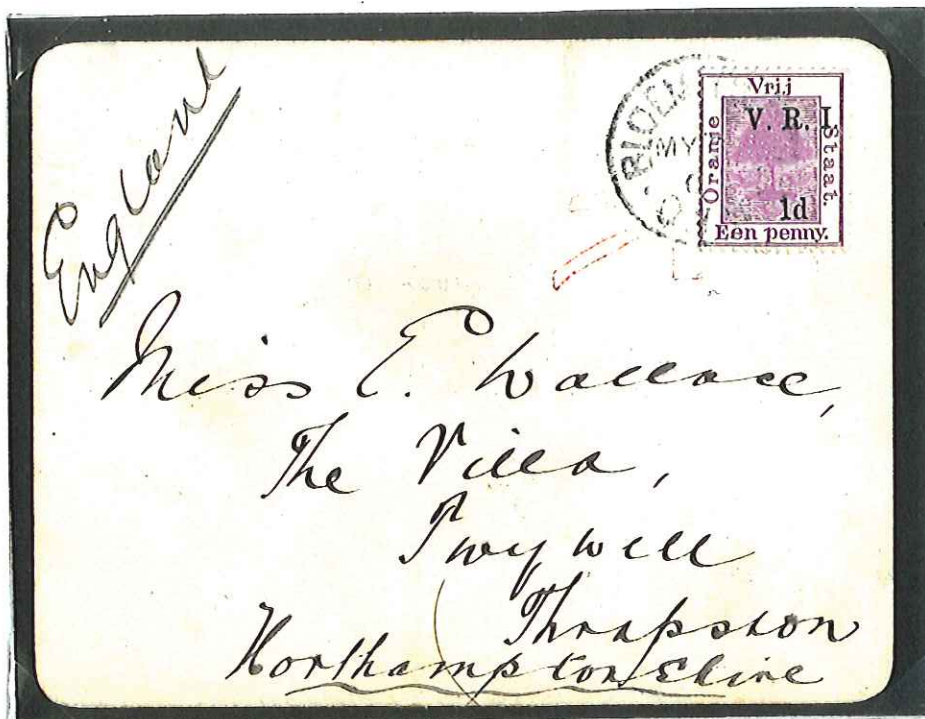 England
BLOEM
MY
Vrij
Oranje
Staat.
V. R. I.
1d
Een penny.
Miss E. Wallace,
The Villa,
Twywell
Thrapston
Northamptonshire